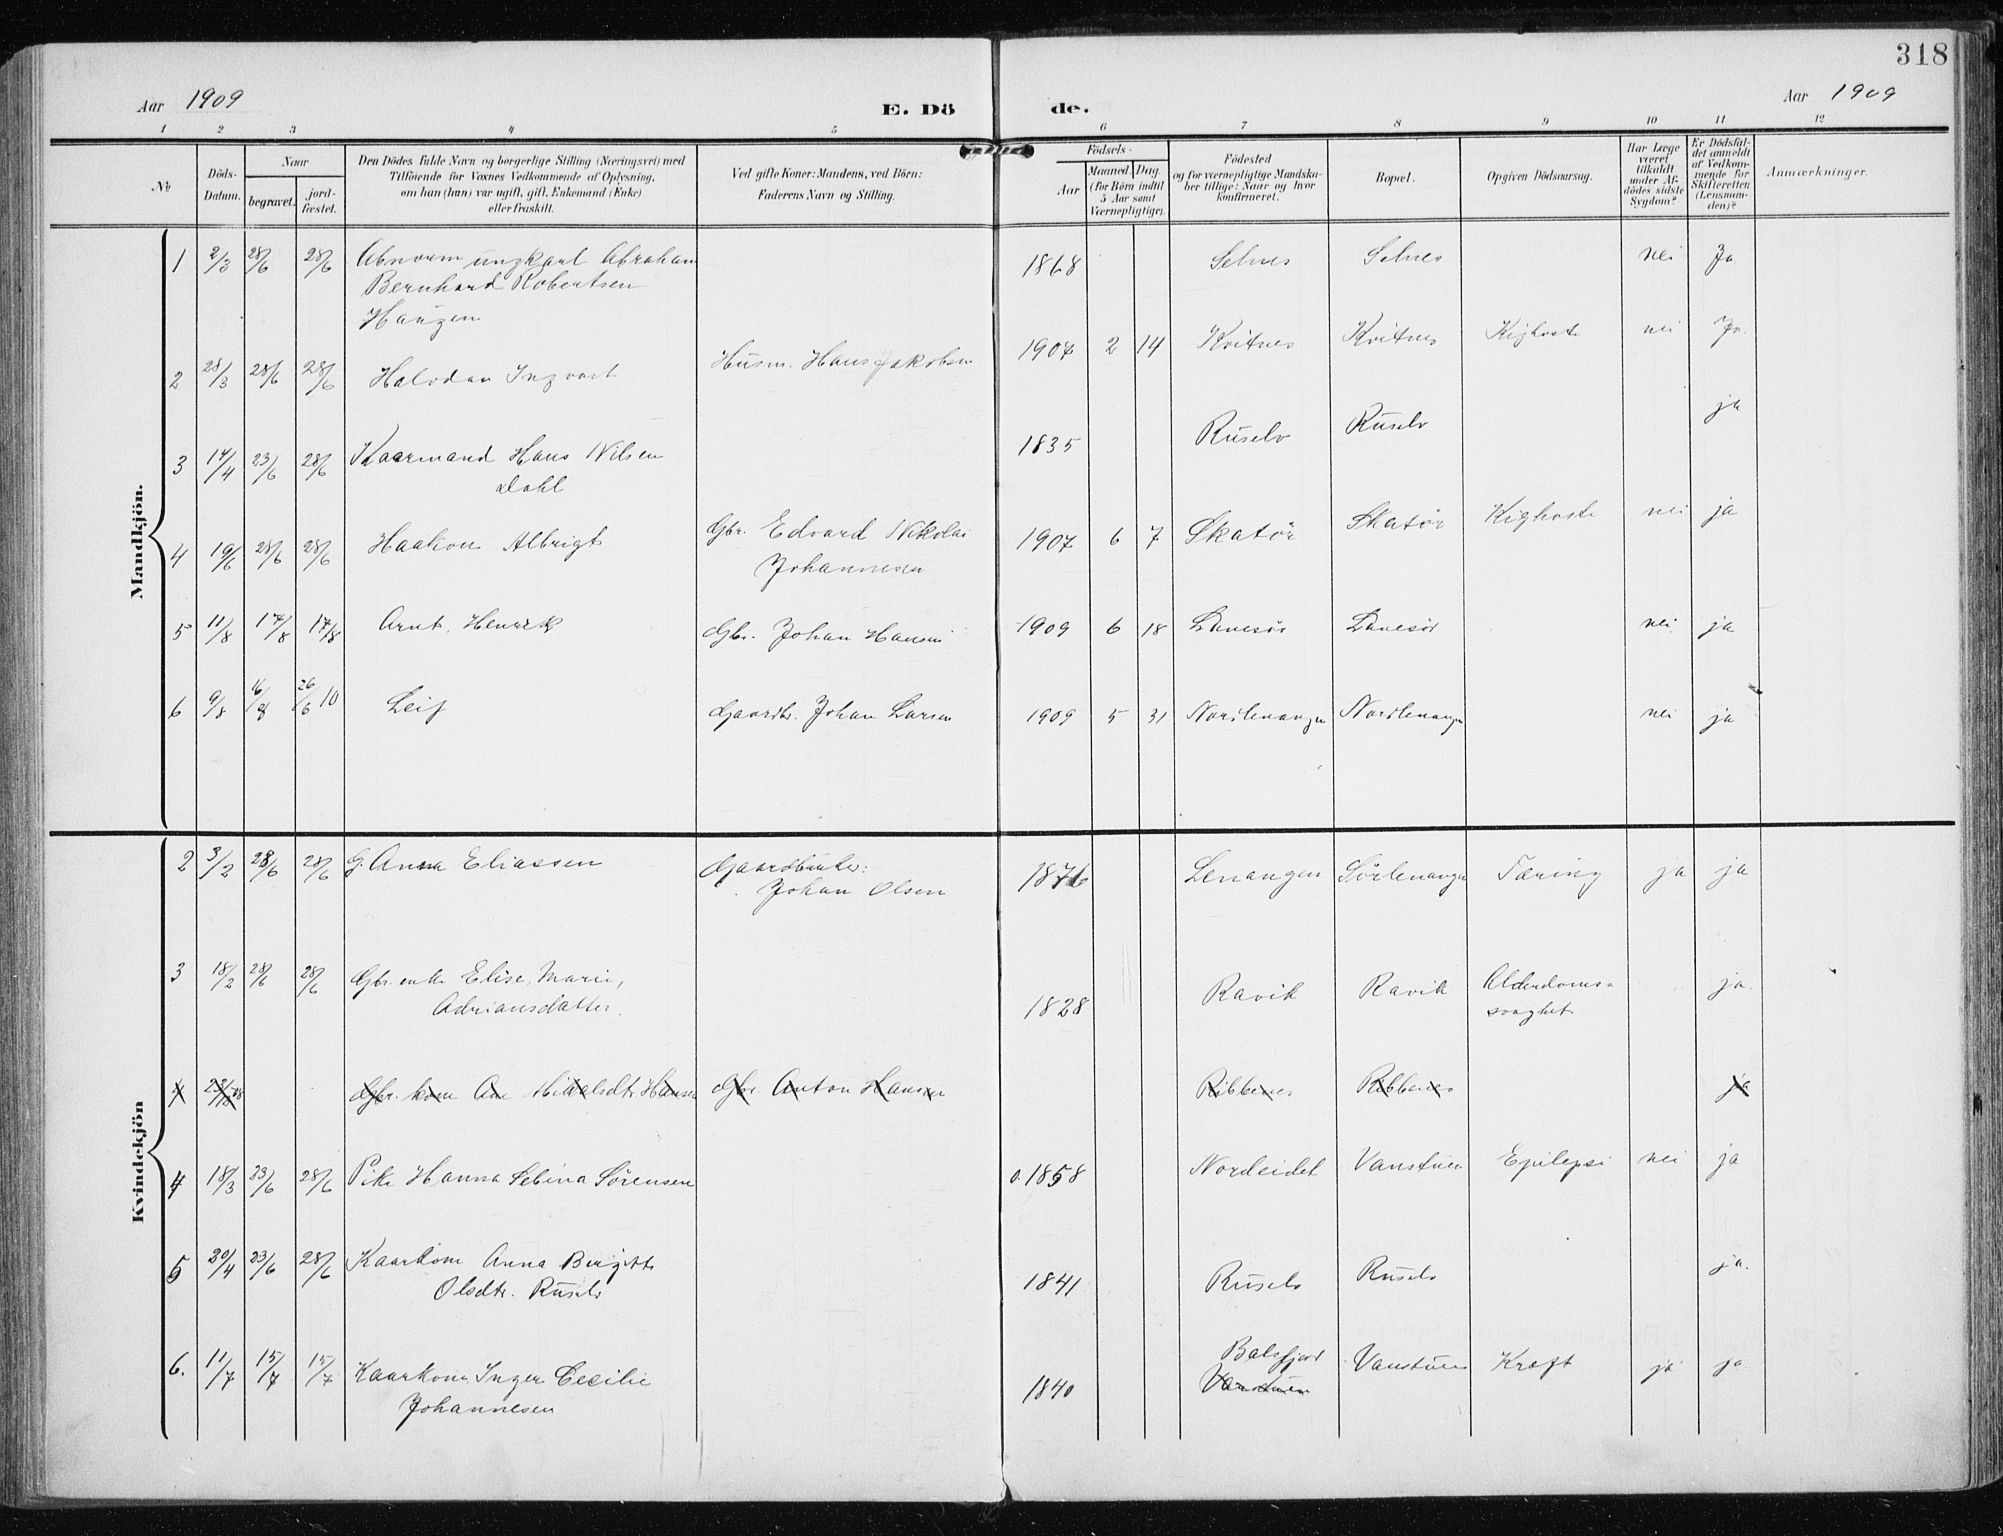 318
Aar 1909 E. Dö de. Aar 1909
1 2 3 4 5 6 7 8 9 10 11 12
№
Döds-Datum.
Naar
begravet.
jord-fæstet.
Den Dödes fulde Navn og borgerlige Stilling (Næringsvei) med
Tilföiende for Voxnes Vedkommende af Oplysning,
om han (hun) var ugift, gift, Enkemand (Enke)
eller fraskilt.
Ved gifte Koner: Mandens, ved Börn:
Faderens Navn og Stilling.
Födsels-
Aar
Maaned. Dag.
(for Börn indtil
5 Aar samt
Værnepligtige).
Födested
og for værnepligtige Mandska-
ber tillige: Naar og hvor
konfirmeret.
Bopæl.
Opgiven Dödsaarsag.
Har Læge
været
tilkaldt
under Af-
dödes sidste
Sygdom?
Er Dödsfal-
det anmeldt
af Vedkom-
mende for
Skifteretten
(Lensman-
den)?
Anmærkninger.
Mandkjön.
1 2/3 28/6 28/6 Abnorm ungkarl Abraham 1868 Selnes Selnes nei Ja
Bernhard Robertsen
Haugen
2 28/3 28/6 28/6 Halvdan Ingvart Husm. Hans Jakobsen 1907 2 14 Kvitnes Kvitnes Kighoste nei Ja.
3 14/4 23/6 28/6 Kaarmand Hans Nilsen 1835 Ruselv Ruselv ja
Dahl
4 19/6 28/6 28/6 Haakon Albrigt Gbr. Edvard Nikolai 1907 6 7 Skatør Skatør Kighoste nei ja
Johannesen
5 11/8 17/8 17/8 Arnt Henrik Gbr. Johan Hansen 1909 6 18 nei ja
6 9/8 16/8 26/6 10 Leif Gaardbr. Johan Larsen 1909 5 31 Nordlenangen Nordlenangen nei ja
Kvindekjön
2 3/2 28/6 28/6 G. Anna Eliassen Gaardbruker: 1876 Lenangen Sørlenangen Tæring ja ja
Johan Olsen
3 18/2 28/6 28/6 Gbr. enke Elise Marie, 1828 Ravik Ravik Alderdoms- ja.
Adriansdatter. svaghet
Gbr. kone Ane Hansen Gbr. Anton Hansen Ribbenes Ribbenes ja
4 18/3 23/6 28/6 Pike Hanna Sebina Sørensen o. 1858 Nordeidet Vanstuen Epilepsi nei ja
5 20/4 23/6 28/6 Kaarkone Anna Birgitte 1841 Ruselv Ruselv ja.
Olsdtr. Ruselv
6. 11/7 15/7 15/7 Kaarkone Inger Cecilie 1840 Balsfjord Vanstuen Kræft ja ja
Johannesen Vanstuen